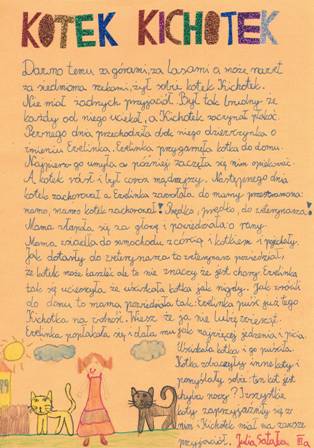 KOTEK KICHOTEK
Dawno temu za górami, za lasami a może nawet
za siedmioma rzekami, żył sobie kotek Kichotek.
Nie miał żadnych przyjaciół. Był tak brudny że
każdy od niego uciekał, a Kichotek zaczynał płakać.
Pewnego dnia przechodziła obok niego dziewczynka o
imieniu Ewelinka. Ewelinka przygarnęła kotka do domu.
Najpierw go umyła, a później zaczęła się nim opiekować.
A kotek rósł i był coraz mądrzejszy. Następnego dnia
kotek zachorował a Ewelinka zawołała do mamy przestraszona:
mamo, mamo kotek zachorował! Prędko, prędko, do weterynarza!
Mama złapała się za głowę i powiedziała o rany
Mama wsiadła do samochodu z córką i kotkiem i pojechały.
Jak dotarły do weterynarza to weterynarz powiedział,
że kotek może kaszleć ale to nie znaczy że jest chory. Ewelinka
tak się ucieszyła że uściskała kotka jak nigdy. Jak wróciły
do domu to mama powiedziała tak: Ewelinka puść już tego
Kichotka na wolność. Wiesz że ja nie lubię zwierząt.
Ewelinka popłakała się i dała mu jak najwięcej jedzenia i picia.
Uściskała kotka i go puściła.
Kotka zobaczyły inne koty i
pomyślały sobie: Ten kot jest
chyba nowy? I wszystkie
koty zaprzyjaźniły się z
nim i Kichotek miał na zawsze
przyjaciół. Julia IIIa